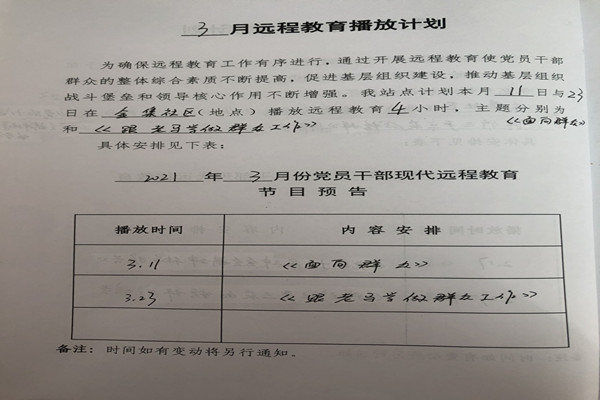 3 月远程教育播放计划
为确保远程教育工作有序进行，通过开展远程教育使党员干部
群众的整体综合素质不断提高，促进基层组织建设，推动基层组织
战斗堡垒和领导核心作用不断增强。我站点计划本月 11 日与23
日在 金集社区(地点) 播放远程教育 4 小时，主题分别为
《面向群众》
和 《跟老马学做群众工作》
具体安排见下表：
2021 年 3 月份党员干部现代远程教育
节目预告
播放时间 内容安排
3.11 《面向群众》
3.23 《跟老马学做群众工作》
备注：时间如有变动将另行通知。